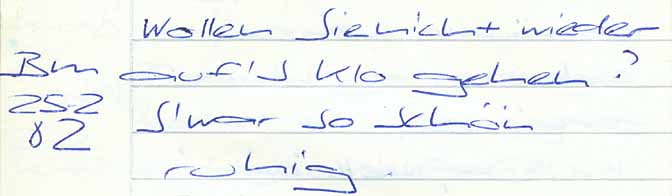 Wollen Sie nicht wieder
Bm auf's Klo gehen?
25.2 S'war so schön
82 ruhig.